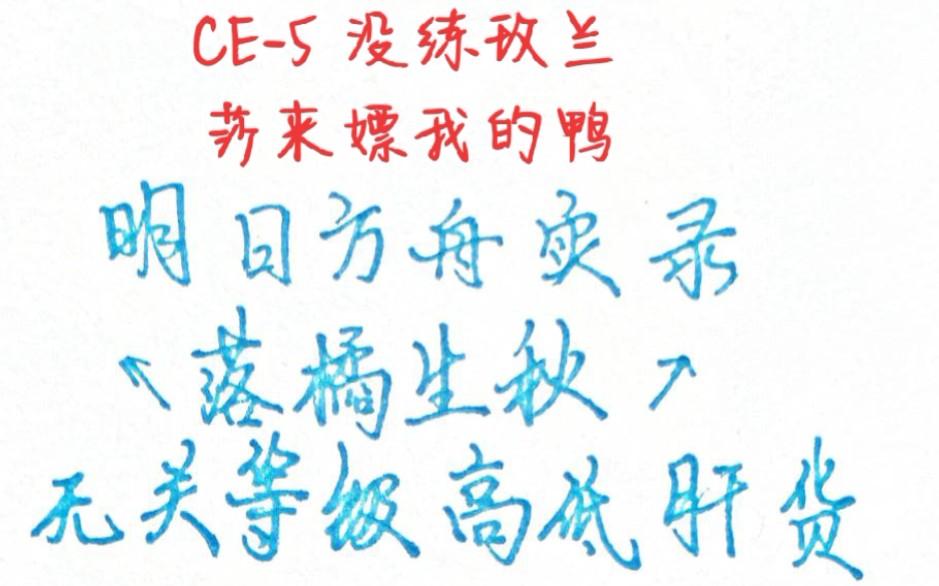 CE-5没练玫兰
莎来嫖我的鸭
明日方舟实录
落橘生秋
无关等级高低肝货